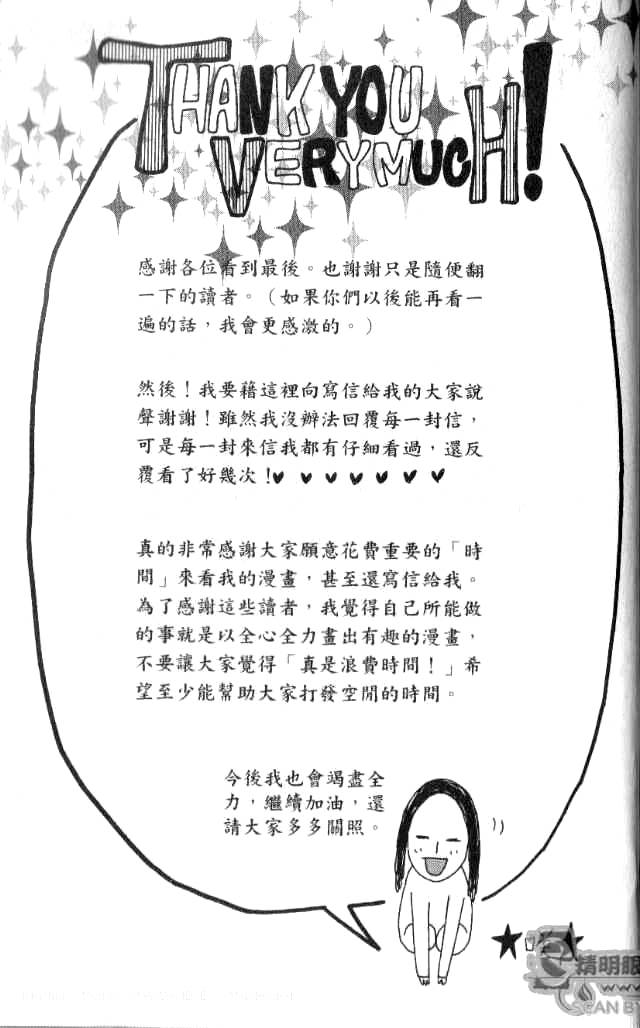 THANK YOU
VERY MUCH!
感謝各位看到最後。也謝謝只是隨便翻
一下的讀者。（如果你們以後能再看一
遍的話，我會更感激的。）
然後！我要藉這裡向寫信給我的大家說
聲謝謝！雖然我沒辦法回覆每一封信，
可是每一封來信我都有仔細看過，還反
覆看了好幾次！♥ ♥ ♥ ♥ ♥ ♥ ♥
真的非常感謝大家願意花費重要的「時
間」來看我的漫畫，甚至還寫信給我。
為了感謝這些讀者，我覺得自己所能做
的事就是以全心全力畫出有趣的漫畫，
不要讓大家覺得「真是浪費時間！」希
望至少能幫助大家打發空閒的時間。
今後我也會竭盡全
力，繼續加油，還
請大家多多關照。
精明眼
SCAN BY